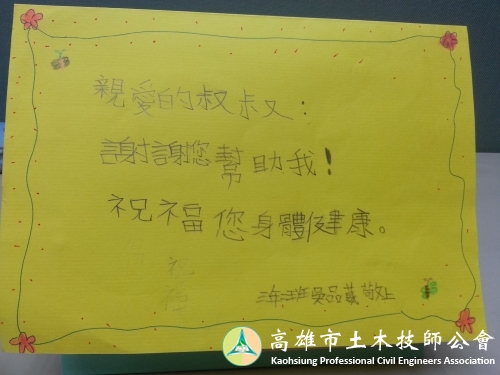 親愛的叔叔:
謝謝您幫助我!
祝福您身體健康。
吳品萱敬上
高雄市土木技師公會
Kaohsiung Professional Civil Engineers Association